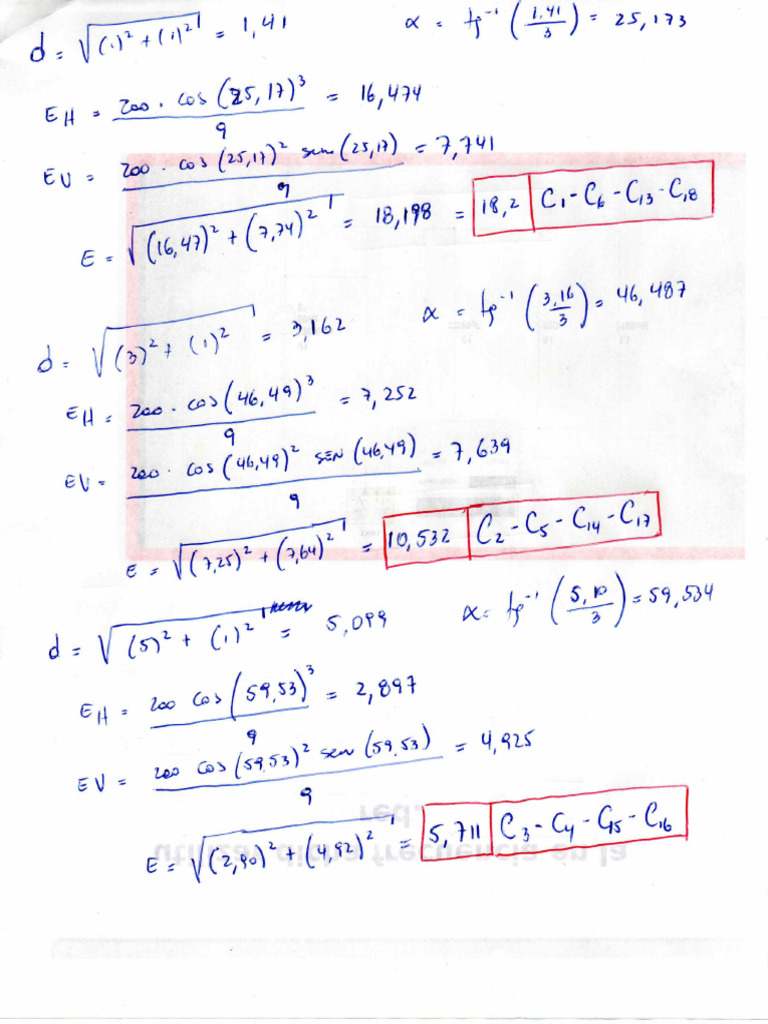 d = √(1)² + (1)² = 1,41    α = tg⁻¹ (1,41/3) = 25,173
EH = 200 · cos (25,17)³ / 9 = 16,474
EV = 200 · cos (25,17)² sen (25,17) / 9 = 7,741
E = √(16,47)² + (7,74)² = 18,198 = 18,2 C1 - C6 - C13 - C18
d = √(3)² + (1)² = 3,162    α = tg⁻¹ (3,16/3) = 46,487
EH = 200 · cos (46,49)³ / 9 = 7,252
EV = 200 · cos (46,49)² SEN (46,49) / 9 = 7,639
E = √(7,25)² + (7,64)² = 10,532 C2 - C5 - C14 - C17
d = √(5)² + (1)² = 5,099    α = tg⁻¹ (5,10/3) = 59,534
EH = 200 cos (59,53)³ / 9 = 2,897
EV = 200 cos (59,53)² sen (59,53) / 9 = 4,925
E = √(2,90)² + (4,92)² = 5,711 C3 - C4 - C15 - C16